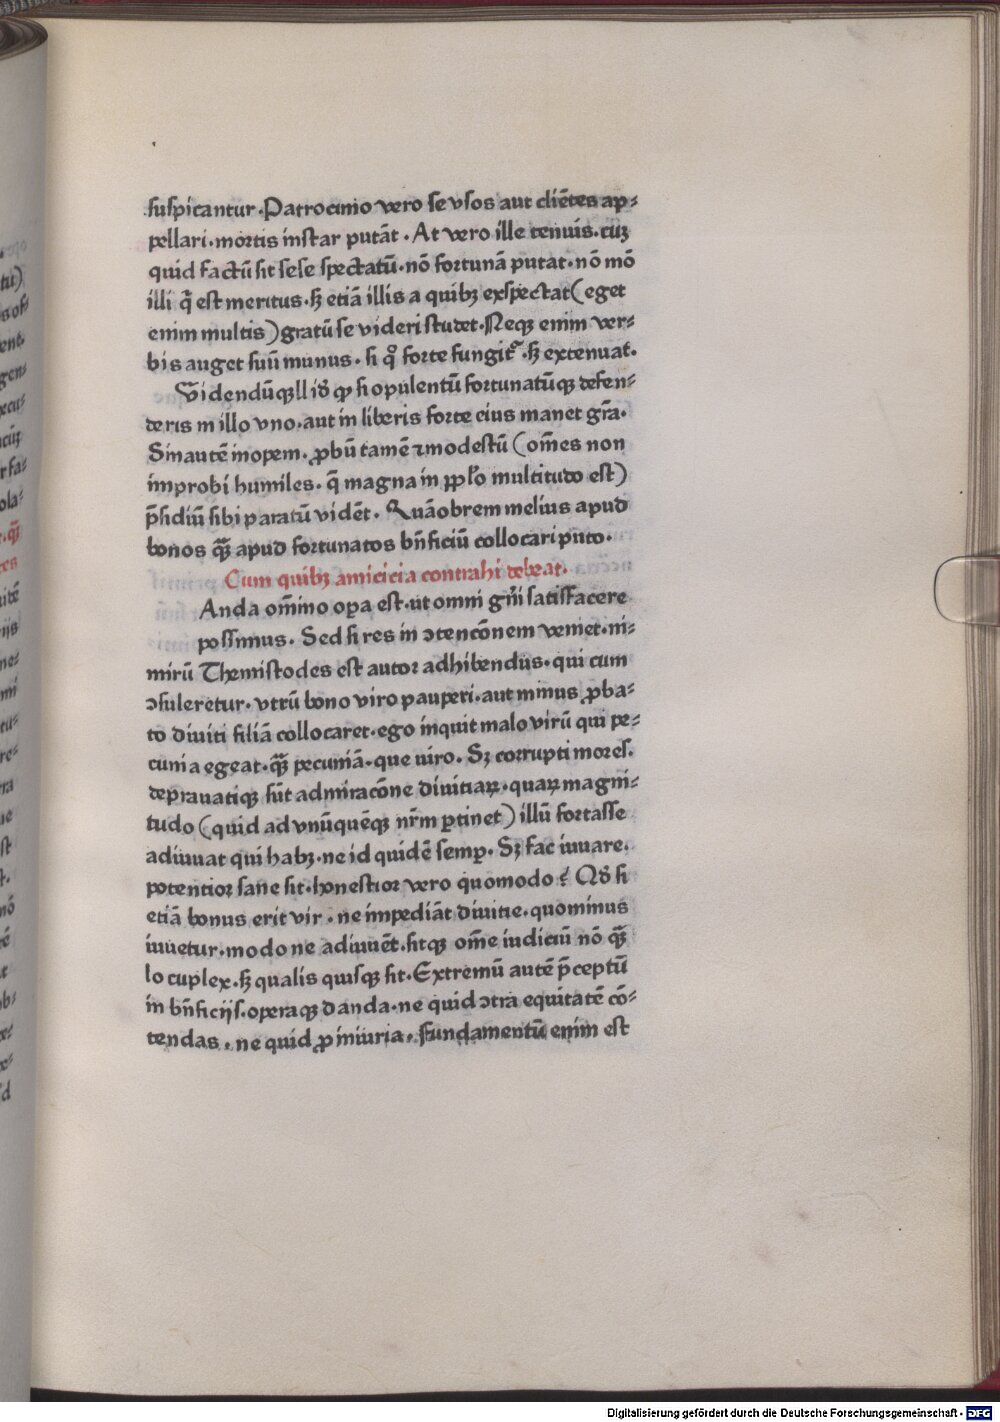 ſuſpicantur·Patrocinio vero ſe vſos aut cliētes ap⸗
pellari·mortis inſtar putāt·At vero ille tenuis·cūꝫ
quid factū ſit ſeſe ſpectatū·nō fortunā putat·nō mō
illi q̄ eſt meritus·ſꝫ etiā illis a quibꝫ exſpectat(eget
enim multis)gratū ſe videri ſtudet·Neqꝫ enim ver⸗
bis auget ſuū munus·ſi qͦ forte fungit᷑·ſꝫ extenuat·
Videndūqꝫ ll iđ ꝙ ſi opulentū fortunatūqꝫ defen⸗
deris in illo vno·aut in liberis forte eius manet gr̄a·
Sinautē inopem·ꝓbū tamē ⁊modeſtū(om̄es non
improbi humiles·q̄ magna in pp̄lo multitudo eſt)
p̄ſidiū ſibi paratū vidēt·Quāobrem melius apud
bonos qꝫ̄ apud fortunatos bn̄ficiū collocari puto·
Cum quibꝫ amicicia contrahi debeat·
Anda om̄ino oꝑa eſt·ut omni gn̄i ſatiſfacere
poſſimus·Sed ſi res in ↄtencōnem veniet·ni⸗
mirū Themiſtocles eſt autor adhibendus·qui cum
ↄſuleretur·vtrū bono viro pauperi·aut minus ꝓba⸗
to diuiti filiā collocaret·ego inquit malo virū qui pe⸗
cunia egeat·qꝫ̄ pecuniā·que uiro·Sꝫ corrupti moreſ·
deprauatiqꝫ ſūt admiracōne diuitiaꝝ·quaꝝ magni⸗
tudo(quid ad vnūquēqꝫ nr̄m ꝑtinet)illū fortaſſe
adiuuat qui habꝫ·ne id quidē ſemꝑ·Sꝫ fac iuuare·
potentior ſane ſit·honeſtior vero quomodo? Qđ ſi
etiā bonus erit vir·ne impediāt diuitie·quominus
iuuetur·modo ne adiuuēt·ſitqꝫ om̄e iudiciū nō qꝫ̄
lo cuplex·ſꝫ qualis quiſqꝫ ſit·Extremū autē p̄ceptū
in bn̄ficijſ·operaqꝫ danda·ne quid ↄtra equitatē cō⸗
tendas·ne quid ꝓ iniuria·fundamentū enim eſt
Digitalisierung gefördert durch die Deutsche Forschungsgemeinschaft · DFG